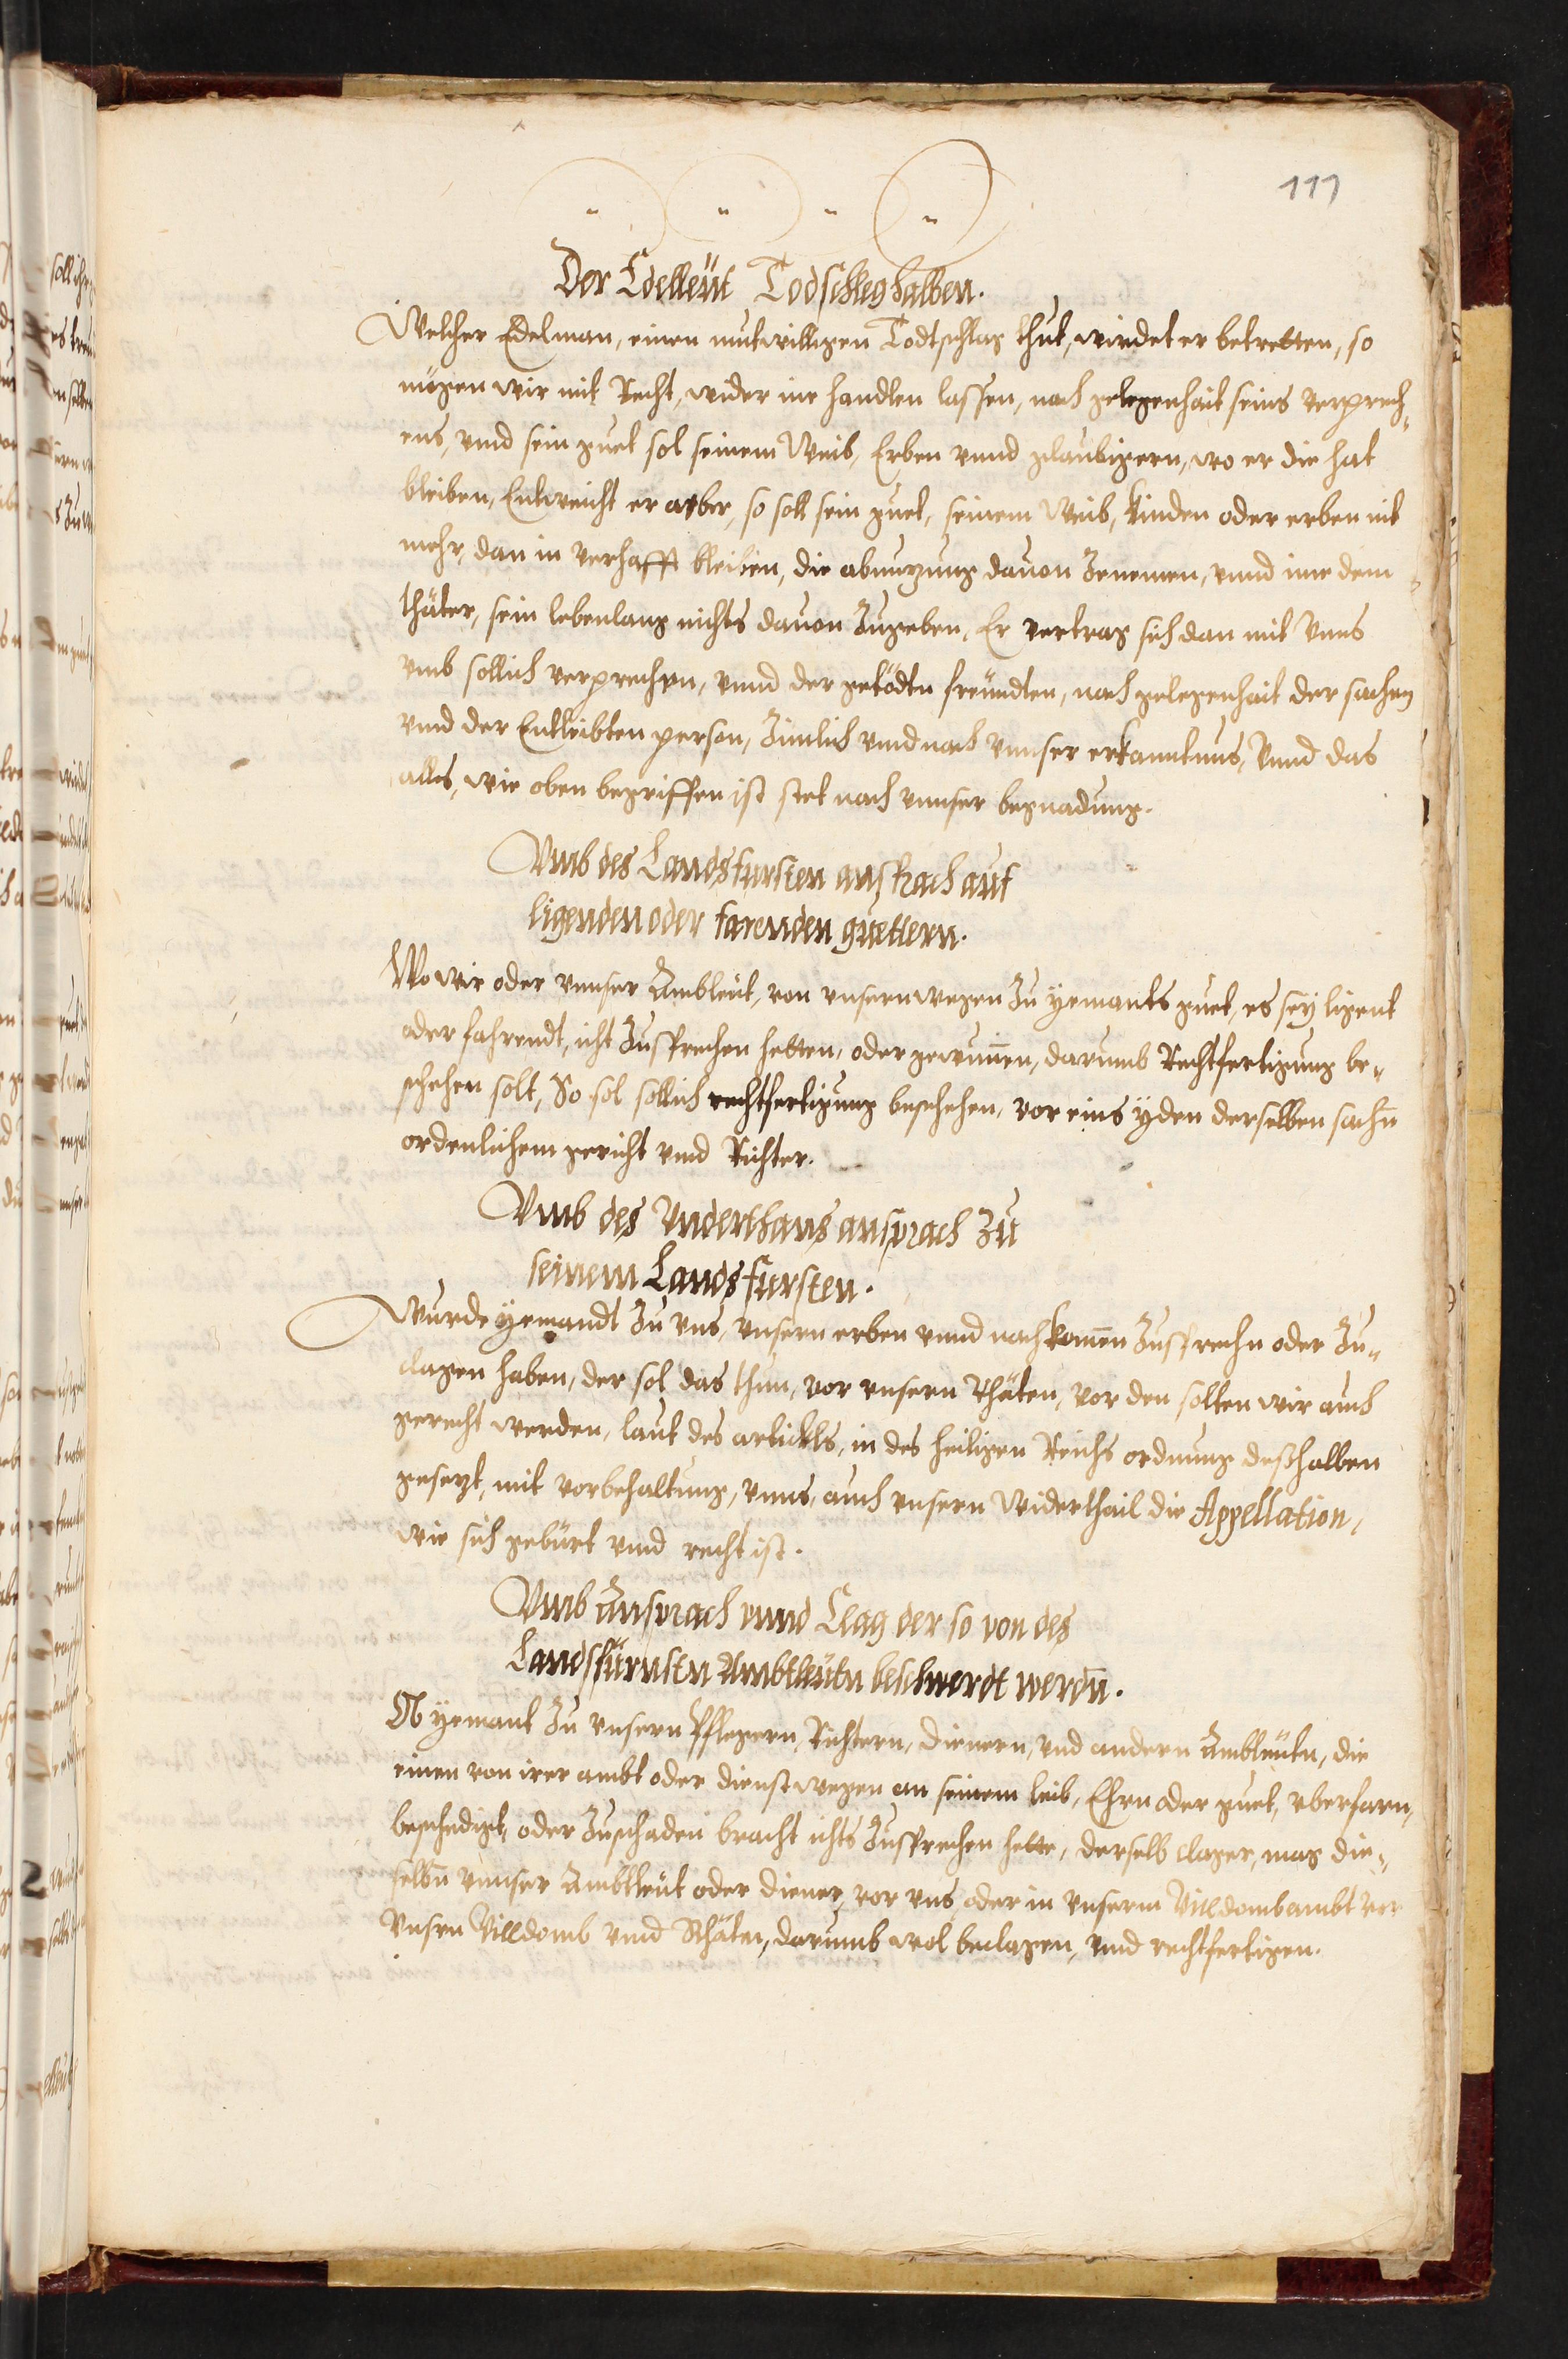 111
Der Edelleüt Todschleg halben.
Welcher Edelman, einen mutwilligen Todtschlag thut, wirdet er betretten, so
mügen wir mit Recht, wider ine handlen lassen, nach gelegenhait seins verprech„
ens, vnnd sein guet sol seinem Weib, Erben vnnd glaubigern, wo er die hat
bleiben, Entweicht er aber, so soll sein guet, seinem Weib, Kinden oder erben nit
mehr, dan in verhafft bleiben, die abnuzung dauon Zenemen, vnnd ime dem
thäter, sein lebenlang nichts dauon Zugeben, Er vertrag sich dan mit Vnns
vmb sollich verprechen, vnnd der getödtn freündten, nach gelegenhait der sachen
vnd der Entleibten person, Zimlich vnd nach vnnser erkanntnus, Vnnd das
alles, wie oben begriffen ist stet nach vnnser begnadung.
Vmb des Landsfursten ansprach auf
ligenden oder farenden guettern.
Wo wir oder vnnser Ambleüt, von vnsern wegen Zu yemants guet, es sey ligent
oder fahrendt, icht Zusprechen hetten, oder gewunnen, darumb Rechtfertigung be„
schehen solt, So sol sollich rechtfertigung beschehen, vor eins yden derselben sachn
ordenlichem gericht vnd Richter.
Vmb des Vnderthans ansprach Zu
seinem Landsfursten.
Wurde yemandt Zu vns, vnsern erben vnnd nachkomen Zusprechn oder Zu„
clagen haben, der sol das thun, vor vnsern Rhäten, vor den sollen wir auch
gerecht werden, laut des artickls, in des heiligen Reichs ordnung deßhalben
gesezt, mit vorbehaltung, vnns, auch vnsern widerthail die Appellation,
wie sich gebürt vnnd recht ist.
Vmb Ansprach vnnd Clag der so von des
Landsfürnstn Ambtleütn beschwerdt werdn.
Ob yemant Zu vnsern Pflegern, Richtern, dienern, vnd andern Ambleütn, die
einen von irer ambt oder dienst wegen an seinem leib, Ehrn oder guet, vberfarn,
beschedigt, oder Zuschaden bracht ichts Zusprechen hette, derselb clager, mag die„
selbn vnnser Ambtleüt oder diener, vor vns, oder in vnserm Villdombambt vor
Vnsrn Villdomb vnnd Rhäten, darumb wol beclagen, vnnd rechtfertigen.